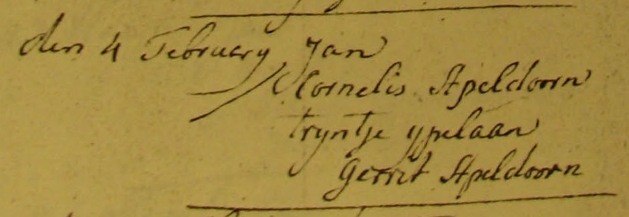 den 4 February Jan
Cornelis Apeldoorn
tryntje ypelaan
Gerrit Apeldoorn